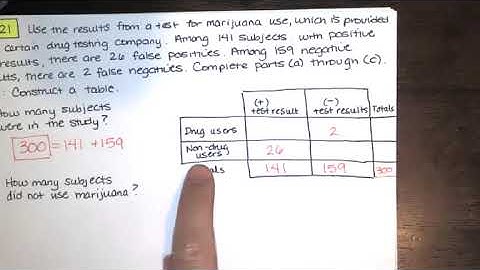 21 Use the results from a test for marijuana use, which is provided
certain drug testing company. Among 141 subjects with positive
results, there are 26 false positives. Among 159 negative
ults, there are 2 false negatives. Complete parts (a) through (c).
: Construct a table.
How many subjects
were in the study?
300 = 141 + 159
How many subjects
did not use marijuana?
(+) test result (-) test results Totals
Drug users 2
Non-drug users 26
als 141 159 300